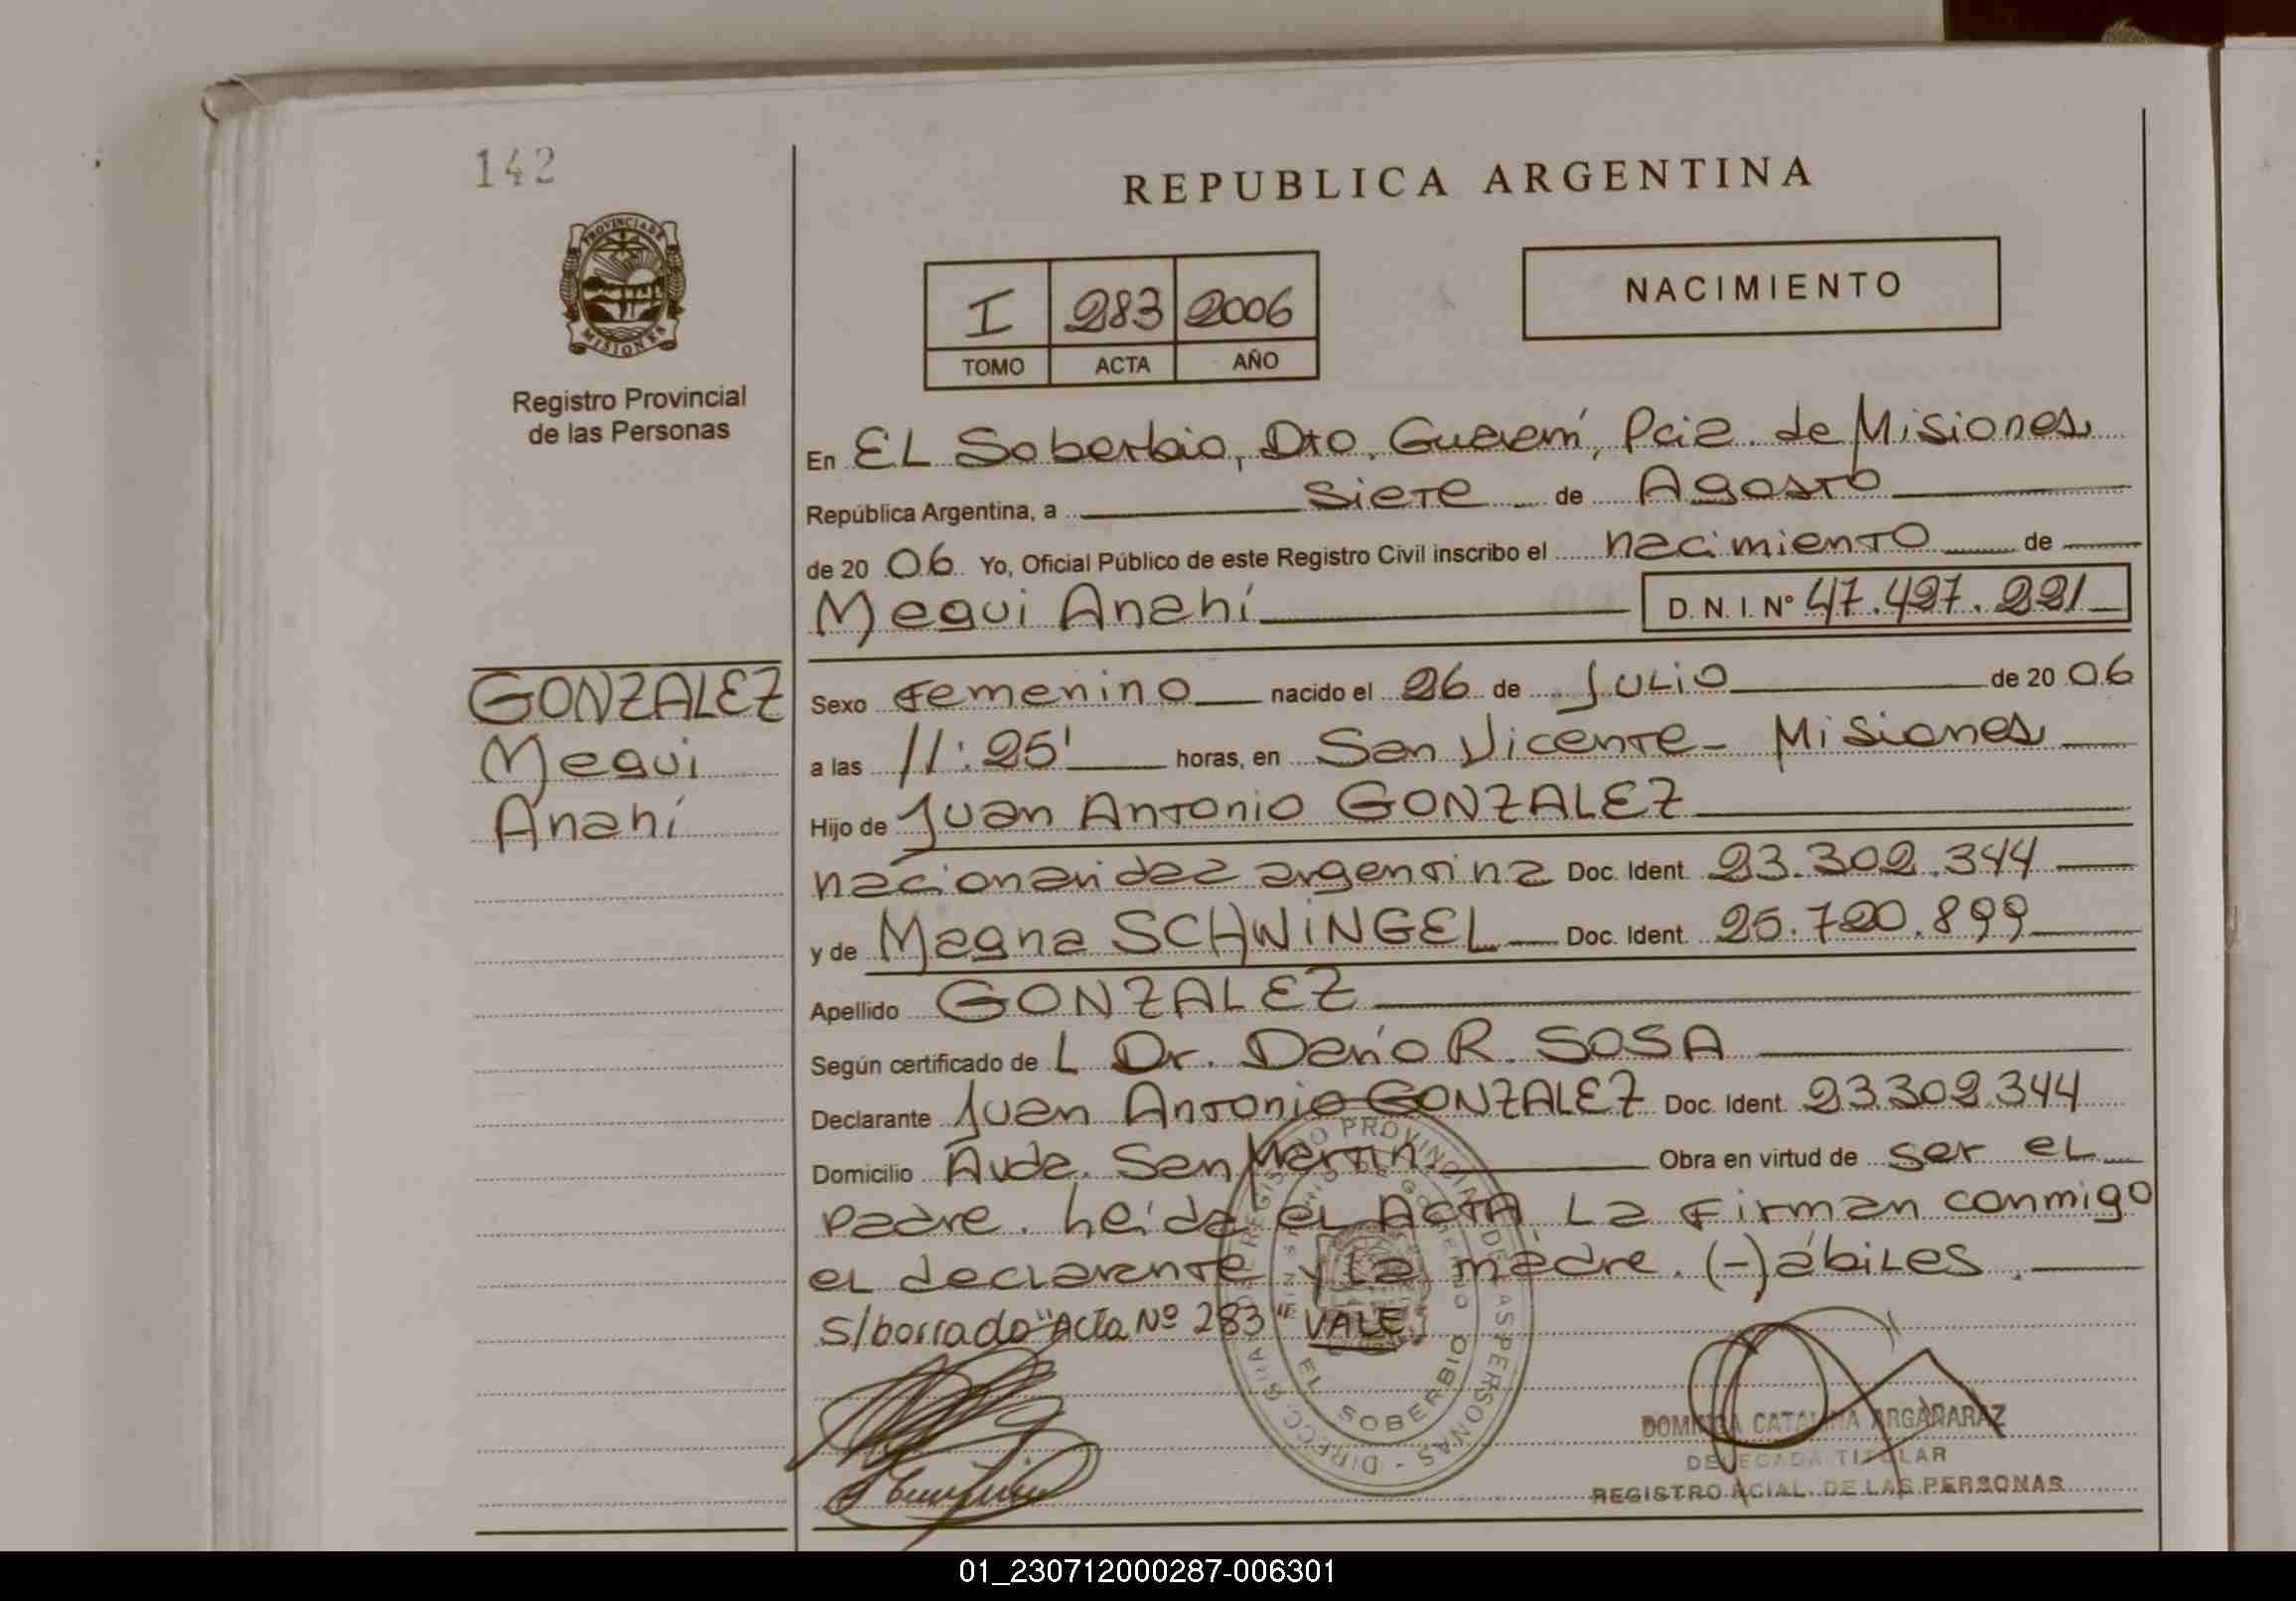 142
REPUBLICA ARGENTINA
PROVINCIA DE
MISIONES
Registro Provincial
de las Personas
I 283 2006
TOMO ACTA AÑO
NACIMIENTO
En EL Soberbio, Dto. Guaraní, Pcia. de Misiones
República Argentina, a siete de Agosto
de 2006 Yo, Oficial Público de este Registro Civil inscribo el nacimiento de
Megui Anahí D. N. I. Nº 47.427.221
GONZALEZ
Megui
Anahí
Sexo Femenino nacido el 26 de Julio de 20 06
a las 11:25' horas, en San Vicente - Misiones
Hijo de Juan Antonio GONZALEZ
nacionalidad argentina Doc. Ident. 23.302.344
y de Magna SCHWiNGEL Doc. Ident. 25.720.899
Apellido GONZALEZ
Según certificado de L Dr. Darío R. SOSA
Declarante Juan Antonio GONZALEZ Doc. Ident. 23.302.344
Domicilio Avda. San Martín Obra en virtud de ser eL
padre. Leída eL ACTA La Firman conmigo
eL decLarante y La madre. (-) ábiLes.
S/borrado "Acta Nº 283" VALE
REGISTRO PROVINCIAL DE LAS PERSONAS - DIRECC
EL SOBERBIO
DOMINGA CATALINA ARGAÑARAZ
DELEGADA TITULAR
REGISTRO PCIAL. DE LAS PERSONAS
01_230712000287-006301